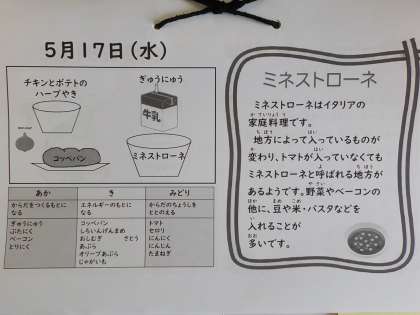 5月17日（水）
チキンとポテトの
ハーブやき
ぎゅうにゅう
牛乳
コッペパン
ミネストローネ
あか
き
みどり
からだをつくるもとに
なる
エネルギーのもとに
なる
からだのちょうしを
ととのえる
ぎゅうにゅう
ぶたにく
ベーコン
とりにく
コッペパン
しろいんげんまめ
おしむぎ　さとう
あぶら
オリーブあぶら
じゃがいも
トマト
セロリ
にんにく
にんじん
たまねぎ
ミネストローネ
ミネストローネはイタリアの
家庭料理です。
地方によって入っているものが
変わり、トマトが入っていなくても
ミネストローネと呼ばれる地方が
あるようです。野菜やベーコンの
他に、豆や米・パスタなどを
入れることが
多いです。